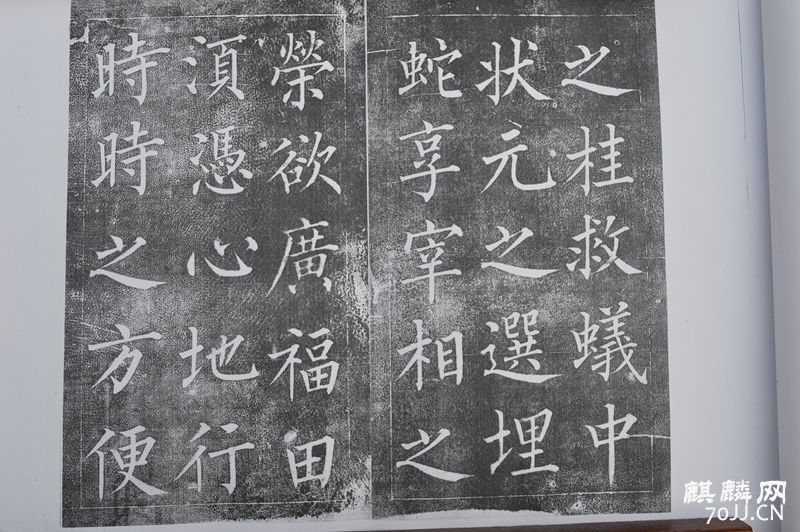 之桂救蟻中
状元之選埋
蛇享宰相之
榮欲廣福田
湏憑心地行
時時之方便
麒麟网
70JJ.CN